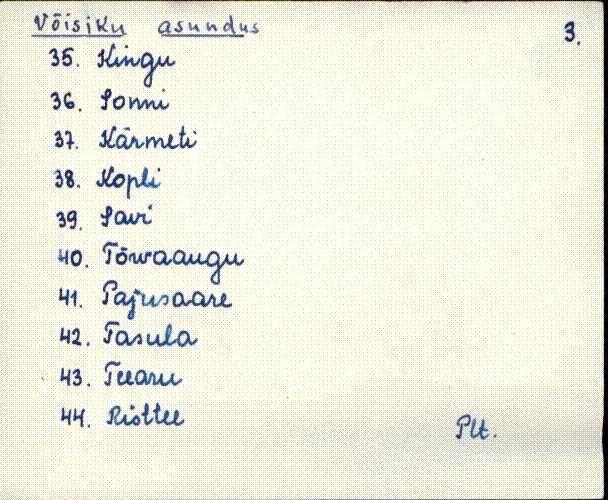 Võisiku asundus 3.
35. Kingu
36. Sonni
37. Kärmeti
38. Kopli
39. Savi
40. Tõrvaaugu
41. Pajusaare
42. Tasula
43. Teearu
44. Risttee
Plt.